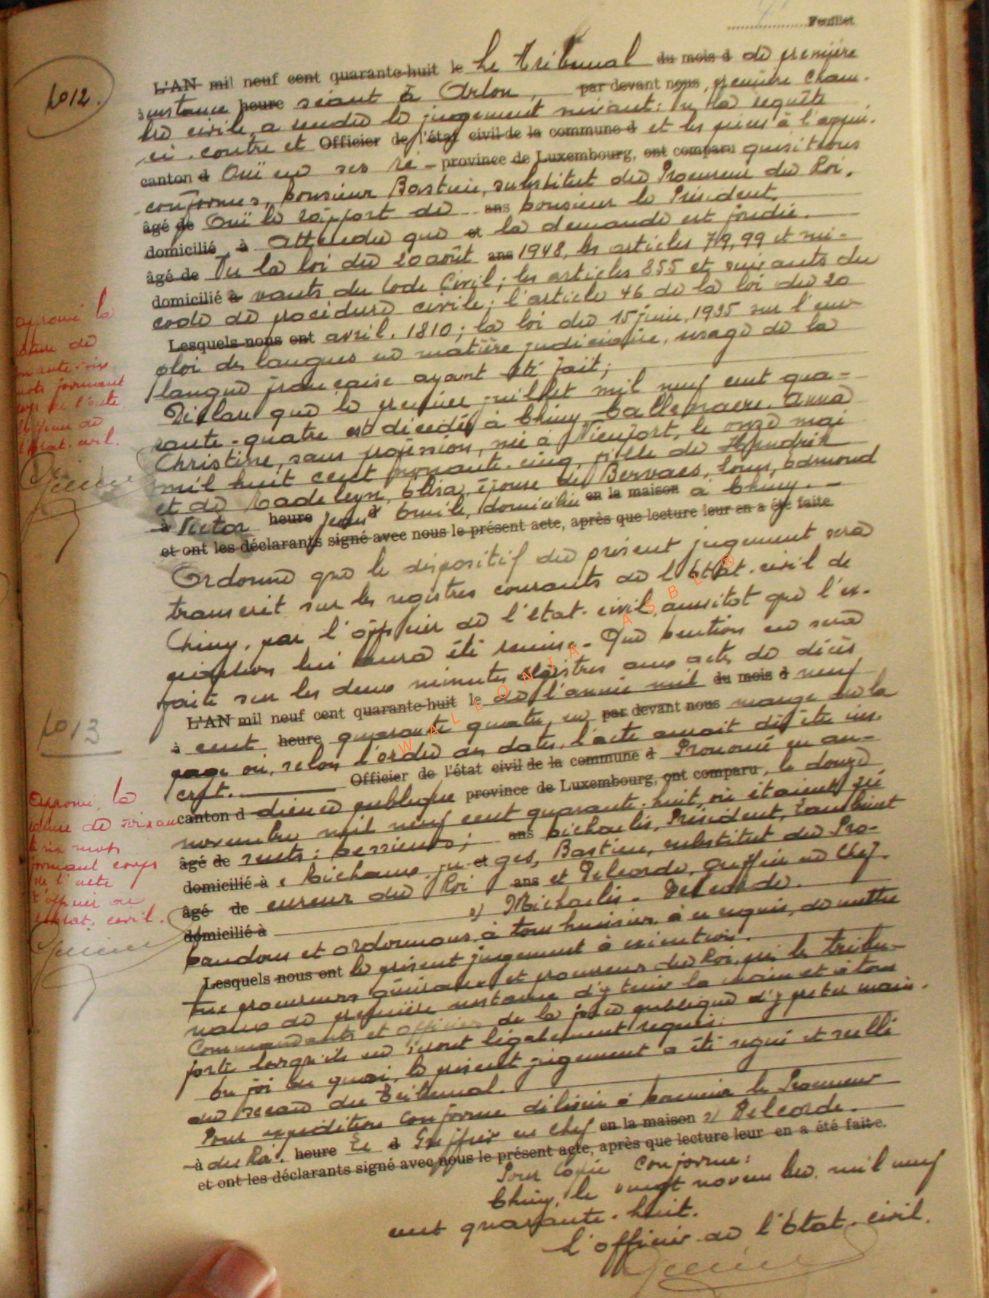 Feuillet
No 12.
L'AN mil neuf cent quarante-huit le Le Tribunal du mois d de première
instance heure séant à Arlon, par devant nous, première cham-
bre civile, a rendu le jugement suivant: Vu la requête
ci-contre et Officier de l'état civil de la commune d et les pièces à l'appui.
canton d Ouï en ses ré- province de Luxembourg, ont comparu quisitions
conformes, Monsieur Bastien, substitut du Procureur du Roi.
âgé de Ouï le rapport de ans Monsieur le Président.
domicilié à Attendu que et la demande est fondée.
âgé de Vu la loi du 20 août ans 1948, les articles 99 et sui-
domicilié à vants du Code Civil; les articles 855 et suivants du
code de procédure civile; l'article 46 de la loi du 20
Lesquels nous ont avril 1810; la loi du 15 juin 1935 sur l'em-
ploi des langues en matière judiciaire, usage de la
langue française ayant été fait;
Déclare que le premier juillet mil neuf cent qua-
rante-quatre est décédée à Chiny Callemaere, Anna
Christine, sans profession, née à Nieuport, le onze mai
mil huit cent nonante-cinq, fille de Hendrik
et de Madeleyn, Elisa, épouse de Bervaes, Louis, Edmond
à Victor heure Jean d Emile, domiciliée en la maison à Chiny.
et ont les déclarants signé avec nous le présent acte, après que lecture leur en a été faite
Ordonne que le dispositif du présent jugement sera
transcrit sur les registres courants de l'état-civil de
Chiny, par l'officier de l'état-civil, aussitôt que l'ex-
pédition lui aura été remise. Que mention en sera
faite sur les deux minutes registres aux actes de décès
No 13
L'AN mil neuf cent quarante-huit le de l'année mil du mois d neuf
à cent heure quarante quatre, en par devant nous marge de la
page où, selon l'ordre des dates, l'acte aurait dû être ins-
crit. Officier de l'état civil de la commune d Prononcé en au-
canton d dience publique province de Luxembourg, ont comparu, le douze
novembre mil neuf cent quarante-huit, où étaient pré
âgé de sents: Messieurs; ans Michaelis, Président, Lambinet
domicilié à et Michaux, ju et ges, Bastien, substitut du Pro-
âgé de cureur du Roi ans et Delcorde, Greffier en chef.
domicilié à s) Michaelis. Delcorde.
Mandons et ordonnons à tous huissiers, à ce requis, de mettre
Lesquels nous ont le présent jugement à exécution.
Aux procureurs généraux et procureurs du Roi près les tribu-
naux de première instance d'y tenir la main et à tous
Commandants et officiers de la force publique d'y prêter main-
forte lorsqu'ils en seront légalement requis.
En foi de quoi, le présent jugement a été signé et scellé
du sceau du Tribunal.
Pour expédition conforme délivrée à Monsieur le Procureur
à du Roi. heure Le d Greffier en chef en la maison s) Delcorde.
et ont les déclarants signé avec nous le présent acte, après que lecture leur en a été faite.
Pour Copie conforme:
Chiny, le vingt novembre mil neuf
cent quarante-huit.
L'officier de l'Etat-civil.
Approuvé la
rature de
mots formant
corps de l'acte
L'officier de
l'état-civil.
Approuvé la
rature de
six mots
formant corps
de l'acte
L'officier de
l'état-civil.
WALEONIA ASBL